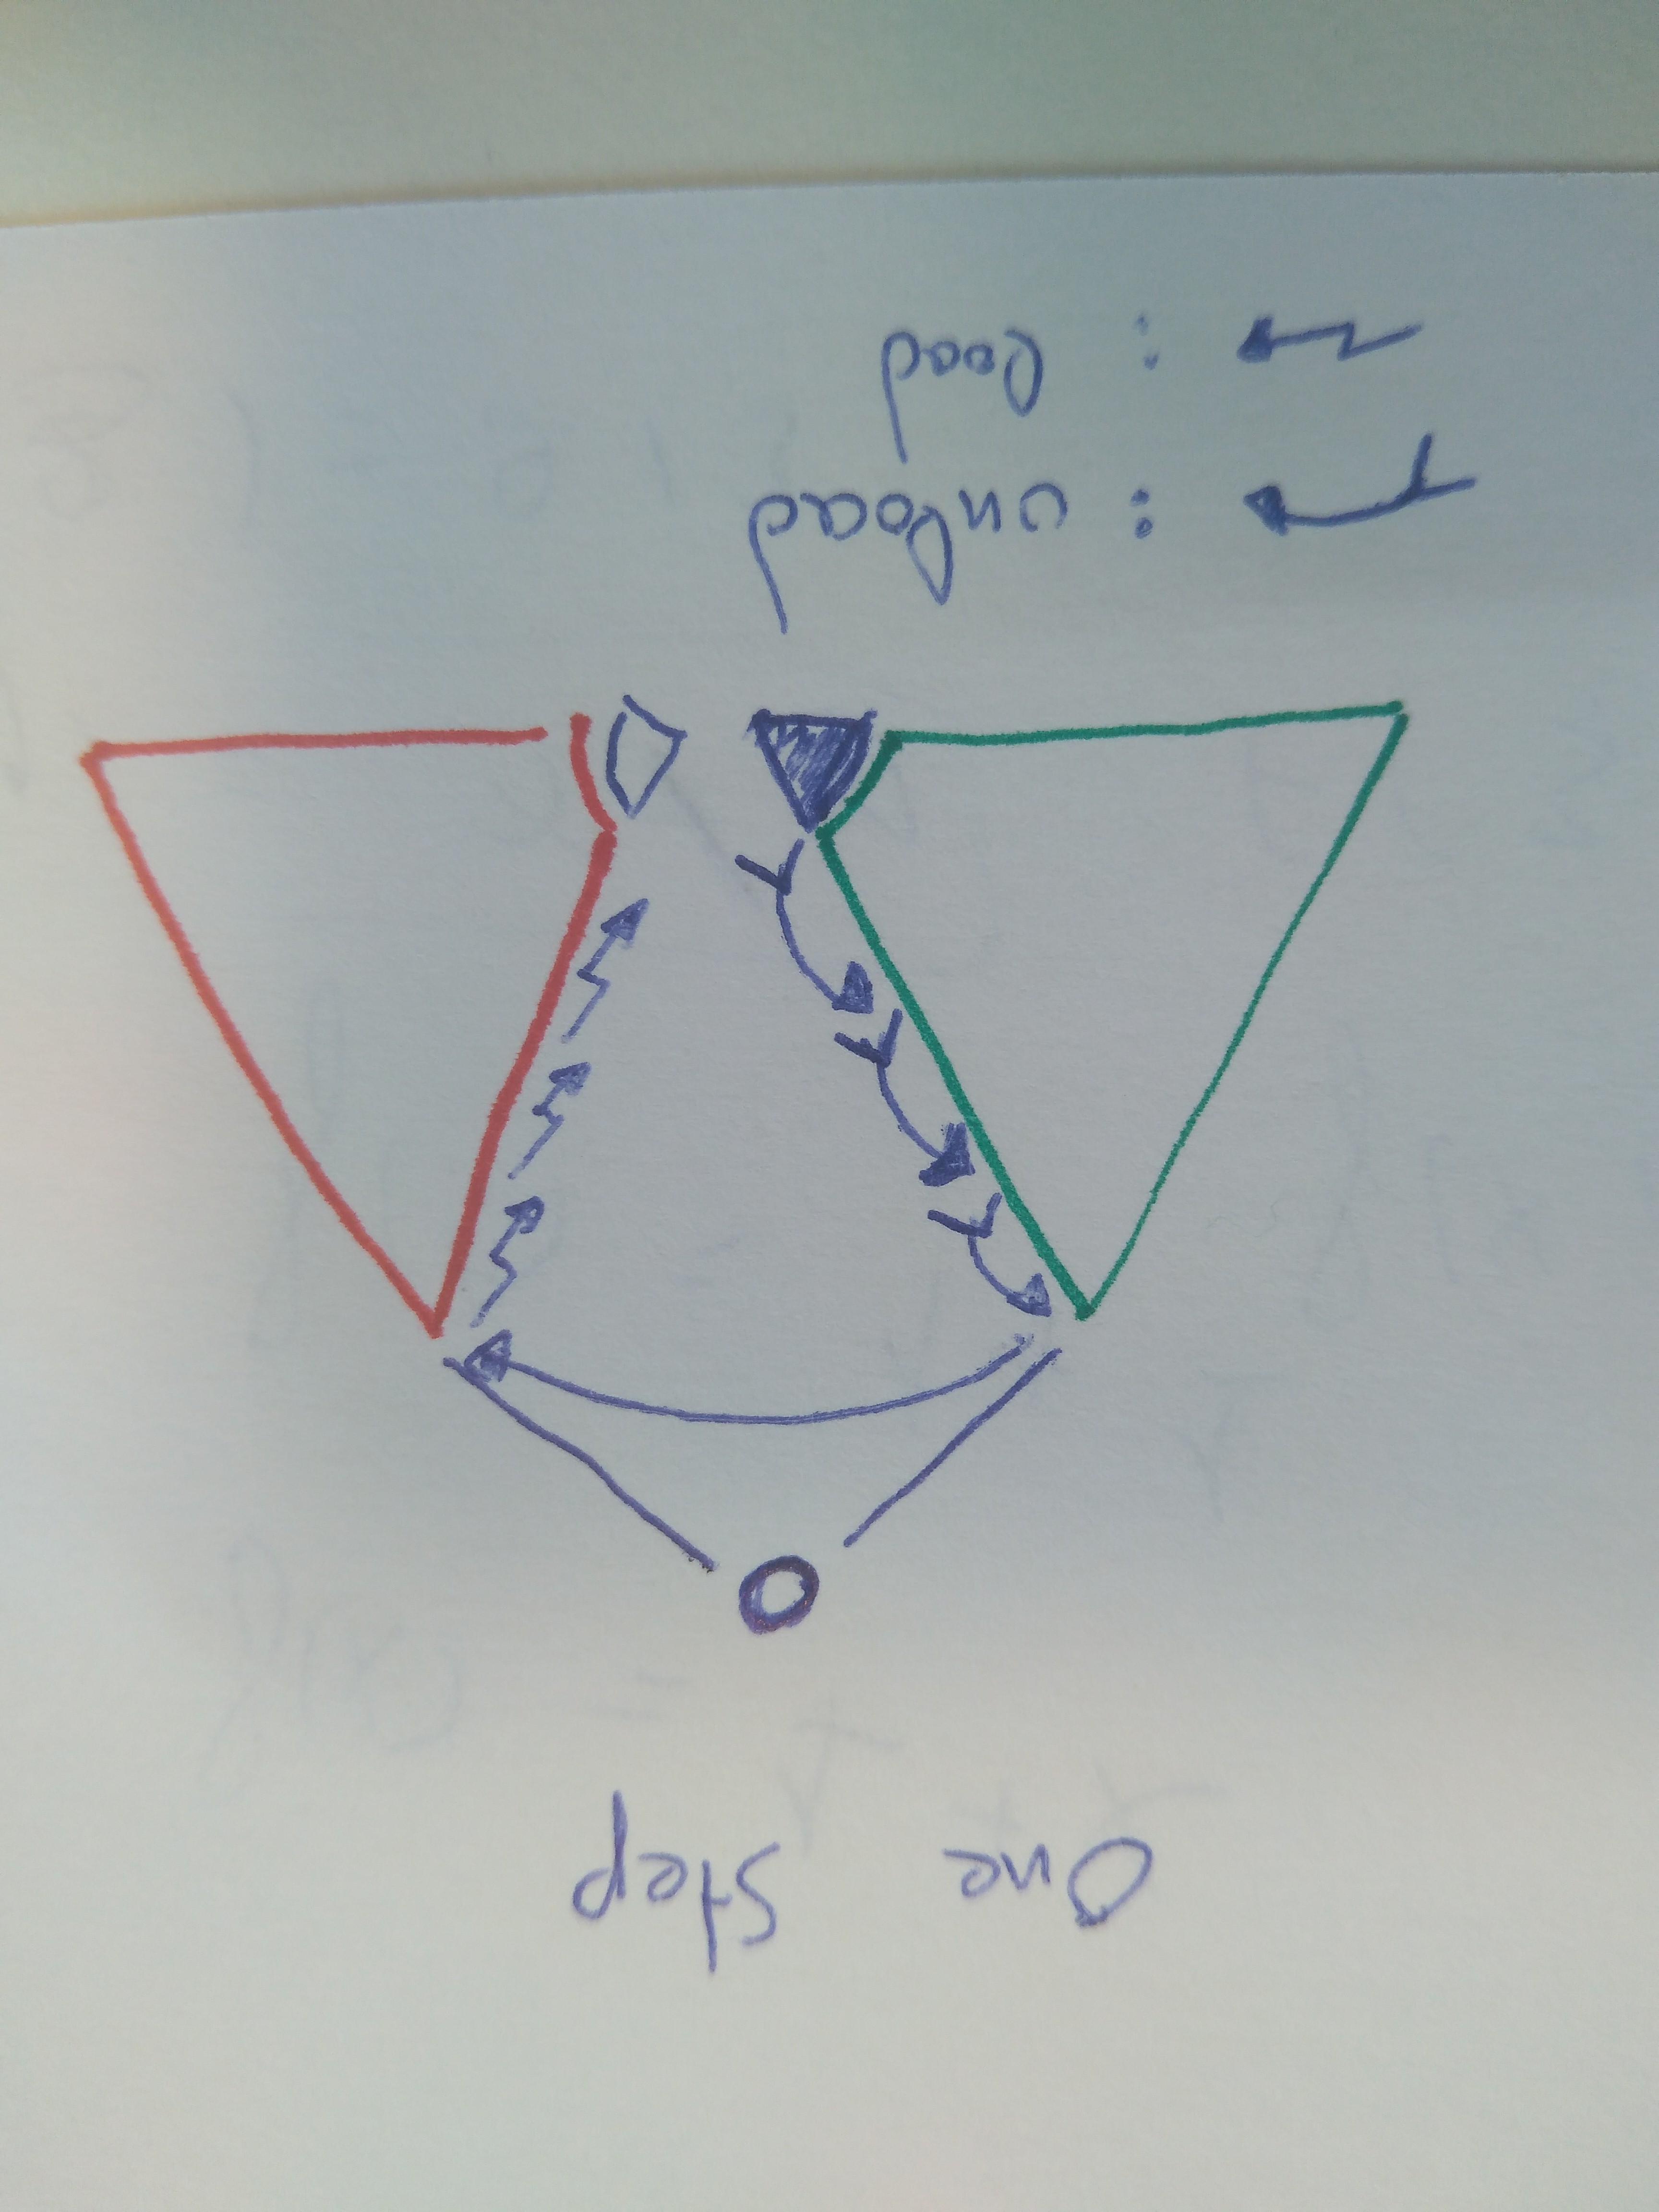 One step
: unload
: load